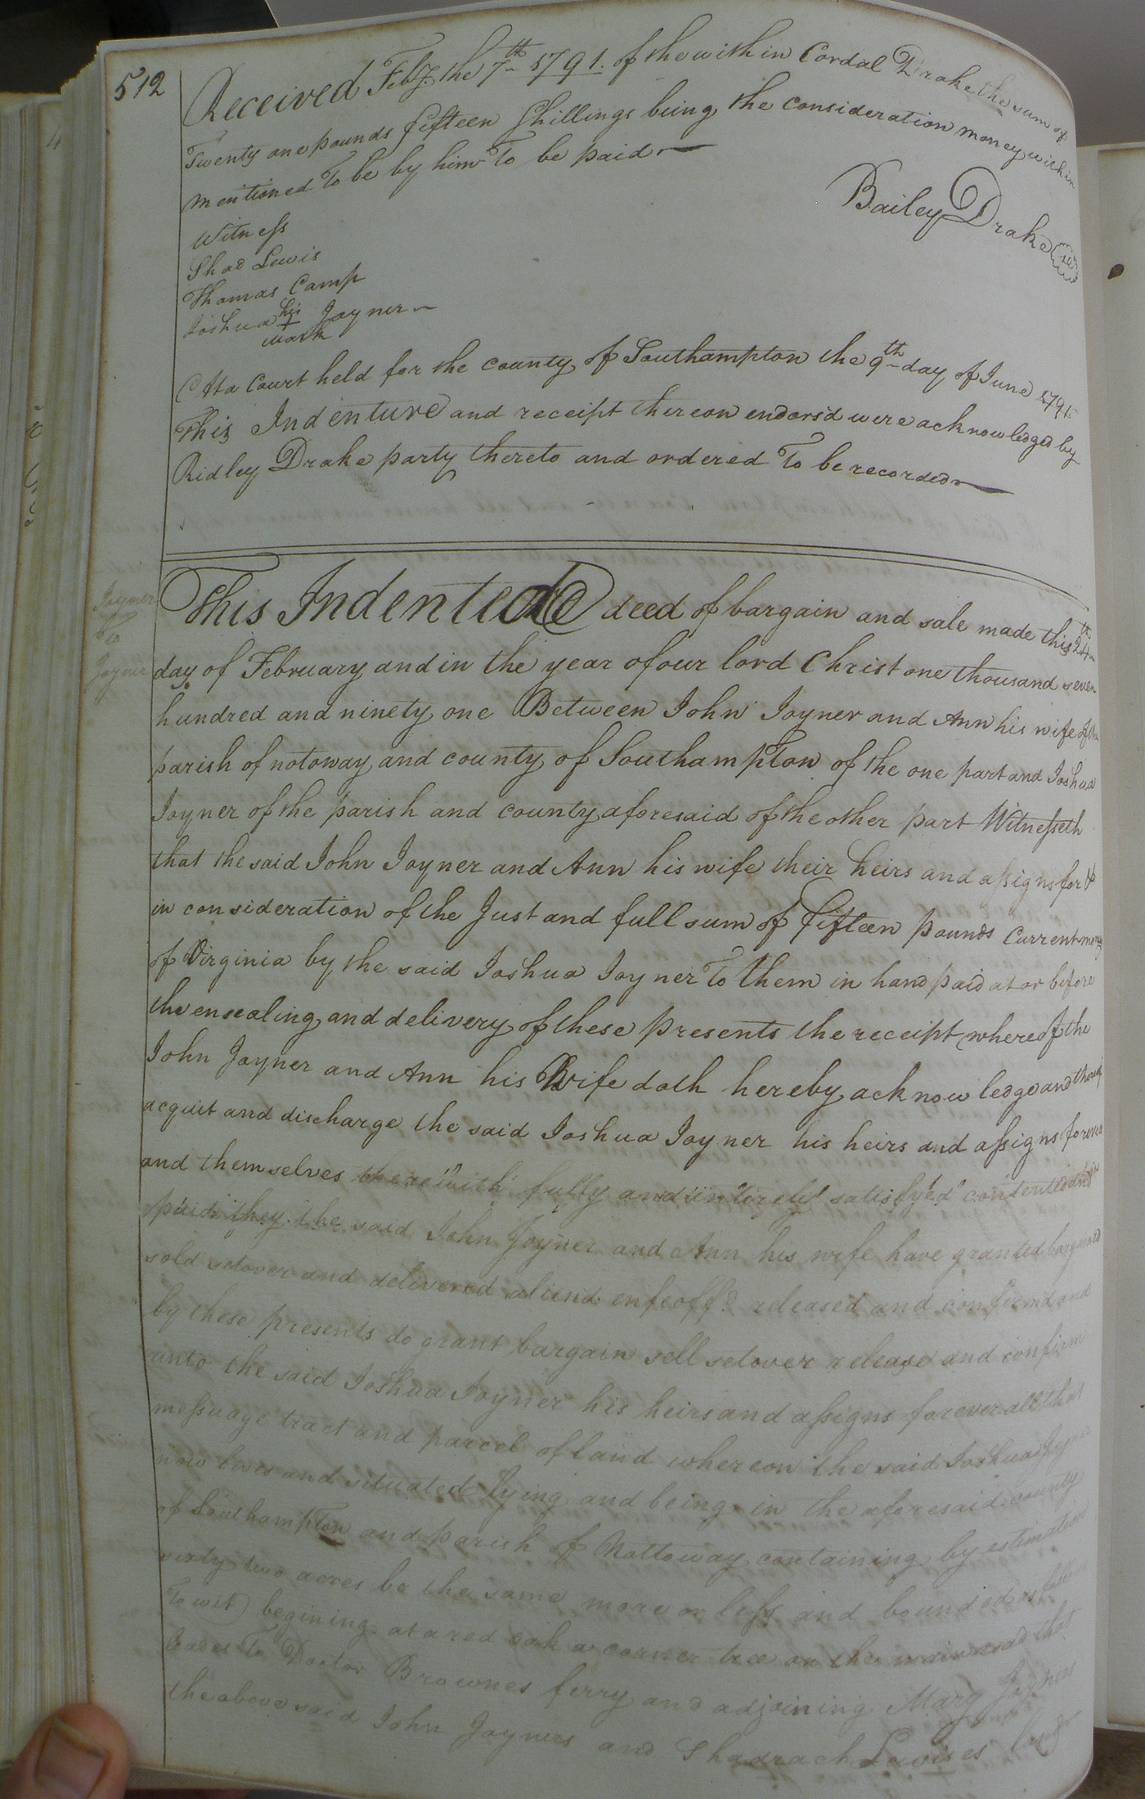 512
Received Feby the 7th 1791. of the within Cordal Drake the sum of
Twenty one pounds fifteen Shillings being the consideration money within
mentioned To be by him To be paid
Bailey Drake
Witness
Shad Lewis
Thomas Camp
Joshua his Joyner
mark
At a Court held for the county of Southampton the 9th day of June 1791
This Indenture and receipt thereon endorsd were acknowledged by
Ridley Drake party thereto and ordered To be recorded
Joyner
to
Joyner
This Indented deed of bargain and sale made this 24th
day of February and in the year of our lord Christ one thousand seven
hundred and ninety one Between John Joyner and Ann his wife of the
parish of notoway and county of Southampton of the one part and Joshua
Joyner of the parish and county aforesaid of the other part Witnesseth
that the said John Joyner and Ann his wife their heirs and assigns for &
in consideration of the Just and full sum of fifteen pounds Current money
of Virginia by the said Joshua Joyner To them in hand paid at or before
the ensealing and delivery of these presents the receipt whereof the
John Joyner and Ann his Wife doth hereby acknowledge and thereof
acquit and discharge the said Joshua Joyner his heirs and assigns forever
and themselves therewith fully and intirely satisfyed contented and
paid they the said John Joyner and Ann his wife have granted bargained
sold setover and delivered aliend enfeoffd released and confirmd and
by these presents do grant bargain sell setover release and confirm
unto the said Joshua Joyner his heirs and assigns forever all that
messuage tract and parcel of land whereon the said Joshua Joyner
now lives and situated lying and being in the aforesaid county
of Southampton and parish of Nottoway containing by estimation
sixty two acres be the same more or less and bounded as
To wit) begining at a red oak a corner tree on the main road that
leades To Doctor Brownes ferry and adjoining Mary Joyners
the above said John Joyners and Shadrach Lewises